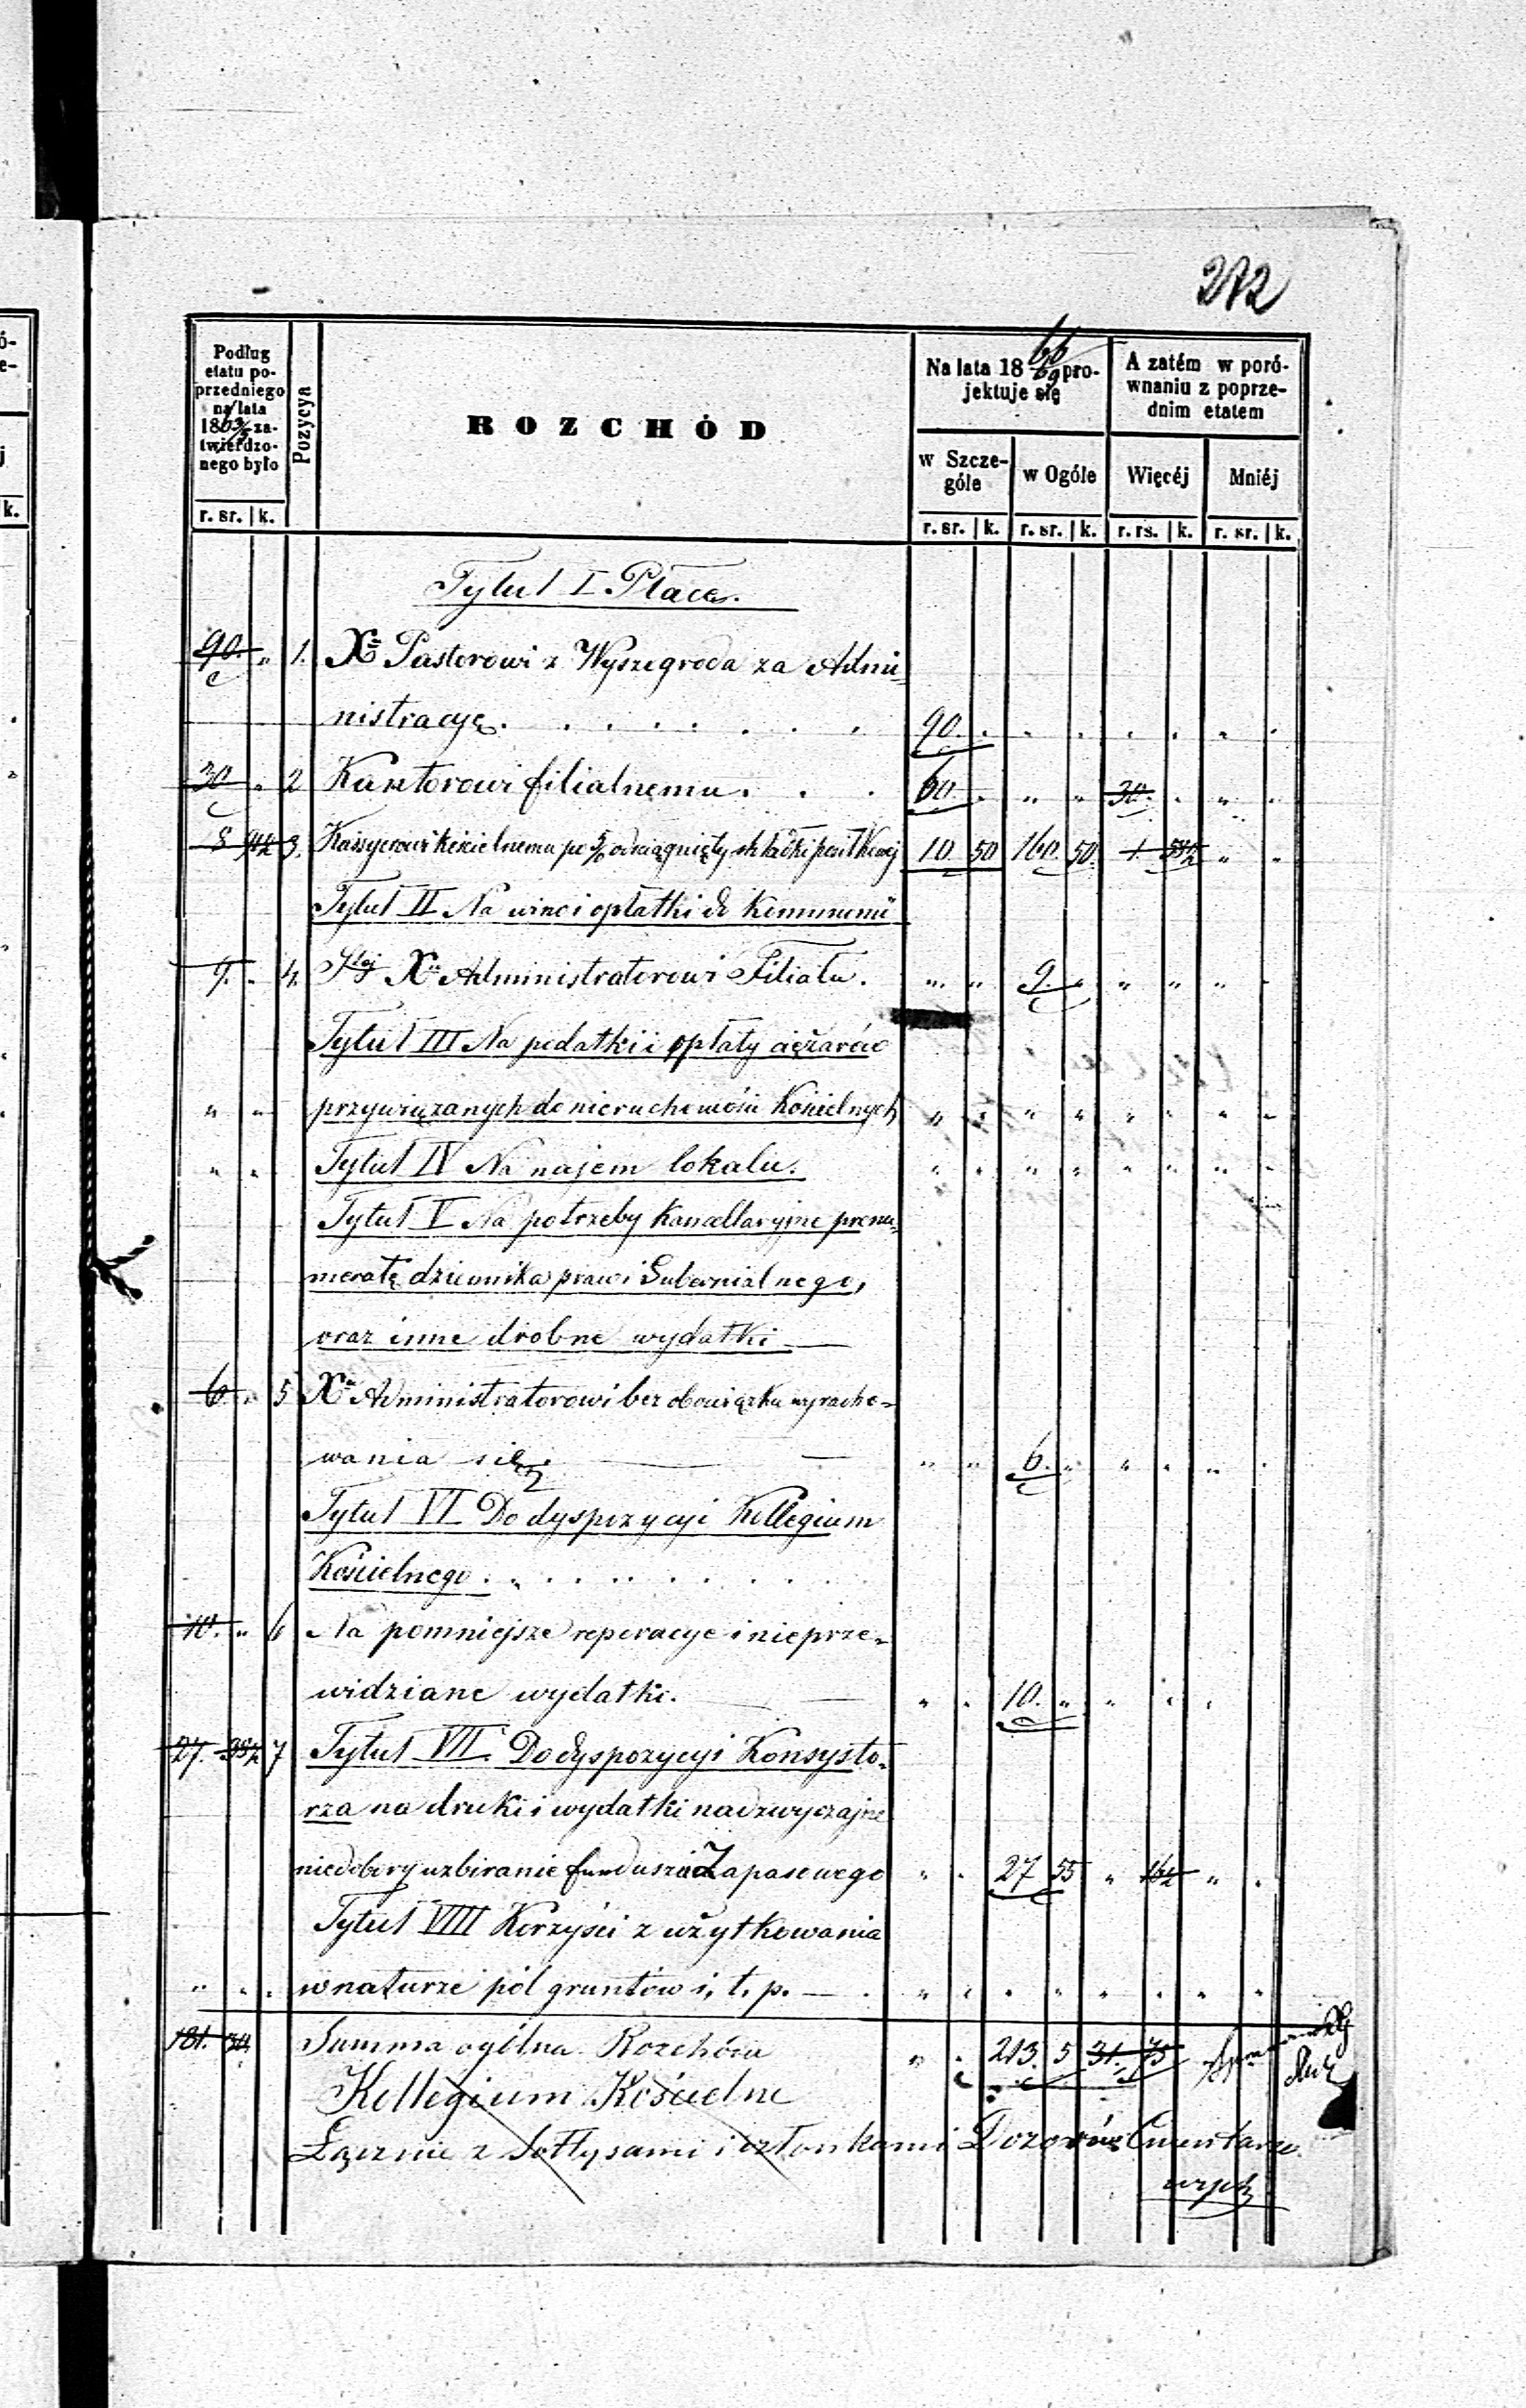 272
Podług etatu poprzedniego na lata 1863/5 zatwierdzonego było
Pozycya
ROZCHÓD
Na lata 18 66/69 projektuje się
A zatém w porównaniu z poprzednim etatem
w Szczególe
w Ogóle
Więcéj
Mniéj
r. sr. | k.
r. sr. | k.
r. sr. | k.
r. rs. | k.
r. sr. | k.
Tytuł I Płace.
90. " 1. Xu Pastorowi z Wyszegroda za Admi-
nistracyę . . . . . . . 90. " " " " " " "
30 " 2 Kantorowi filialnemu . . . 60. " " " 30. " " "
8 94½ 3. Kassyerowi kościelnemu po 5/% odciągnięty składki 10 50 160. 50. 1. 55½ " "
Tytuł II Na wino i opłatki do Kommunii
9. " 4. Stej Xu Administratorowi Filiału. " " 9. " " " " "
Tytuł III Na podatki i opłaty ciężarów
" " przywiązanych do nieruchomości Kościelnych " " " " " " " "
" " Tytuł IV Na najem lokalu. " " " " " " " "
Tytuł V Na potrzeby Kancellaryjne prenu-
meratę dziennika praw i Gubernialnego,
oraz inne drobne wydatki
6. " 5 Xu Administratorowi bez obowiązku wyracho-
wania się. " " 6. " " " " "
Tytuł VI Do dyspozycyi Kollegium
Kościelnego . . . . . . . . . .
10. " 6 Na pomniejsze reperacye i nieprze-
widziane wydatki. " " 10. " " " "
27. 38½ 7 Tytuł VII. Do dyspozycyi Konsysto-
rza na druki i wydatki nadzwyczajne
niedobory uzbiranie funduszu Zapasowego " " 27 55 " 16½ " "
Tytuł VIII Korzyści z użytkowania
" " " w naturze pól gruntów i. t. p. " " " " " " " "
181. 30. Summa ogólna Rozchodu " " 213. 5 31. 75
Kollegium Kościelne
Łącznie z Sołtysami i członkami Dozorów Cmentarzo
wych